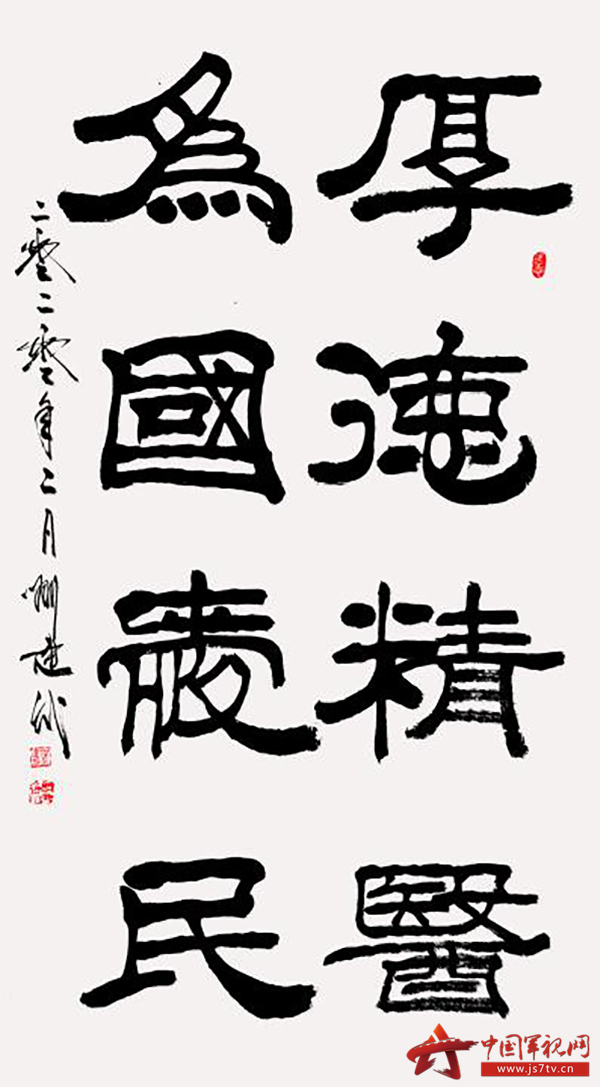 厚德精醫
為國民
二零二零年二月
中国军视网
www.js7tv.cn